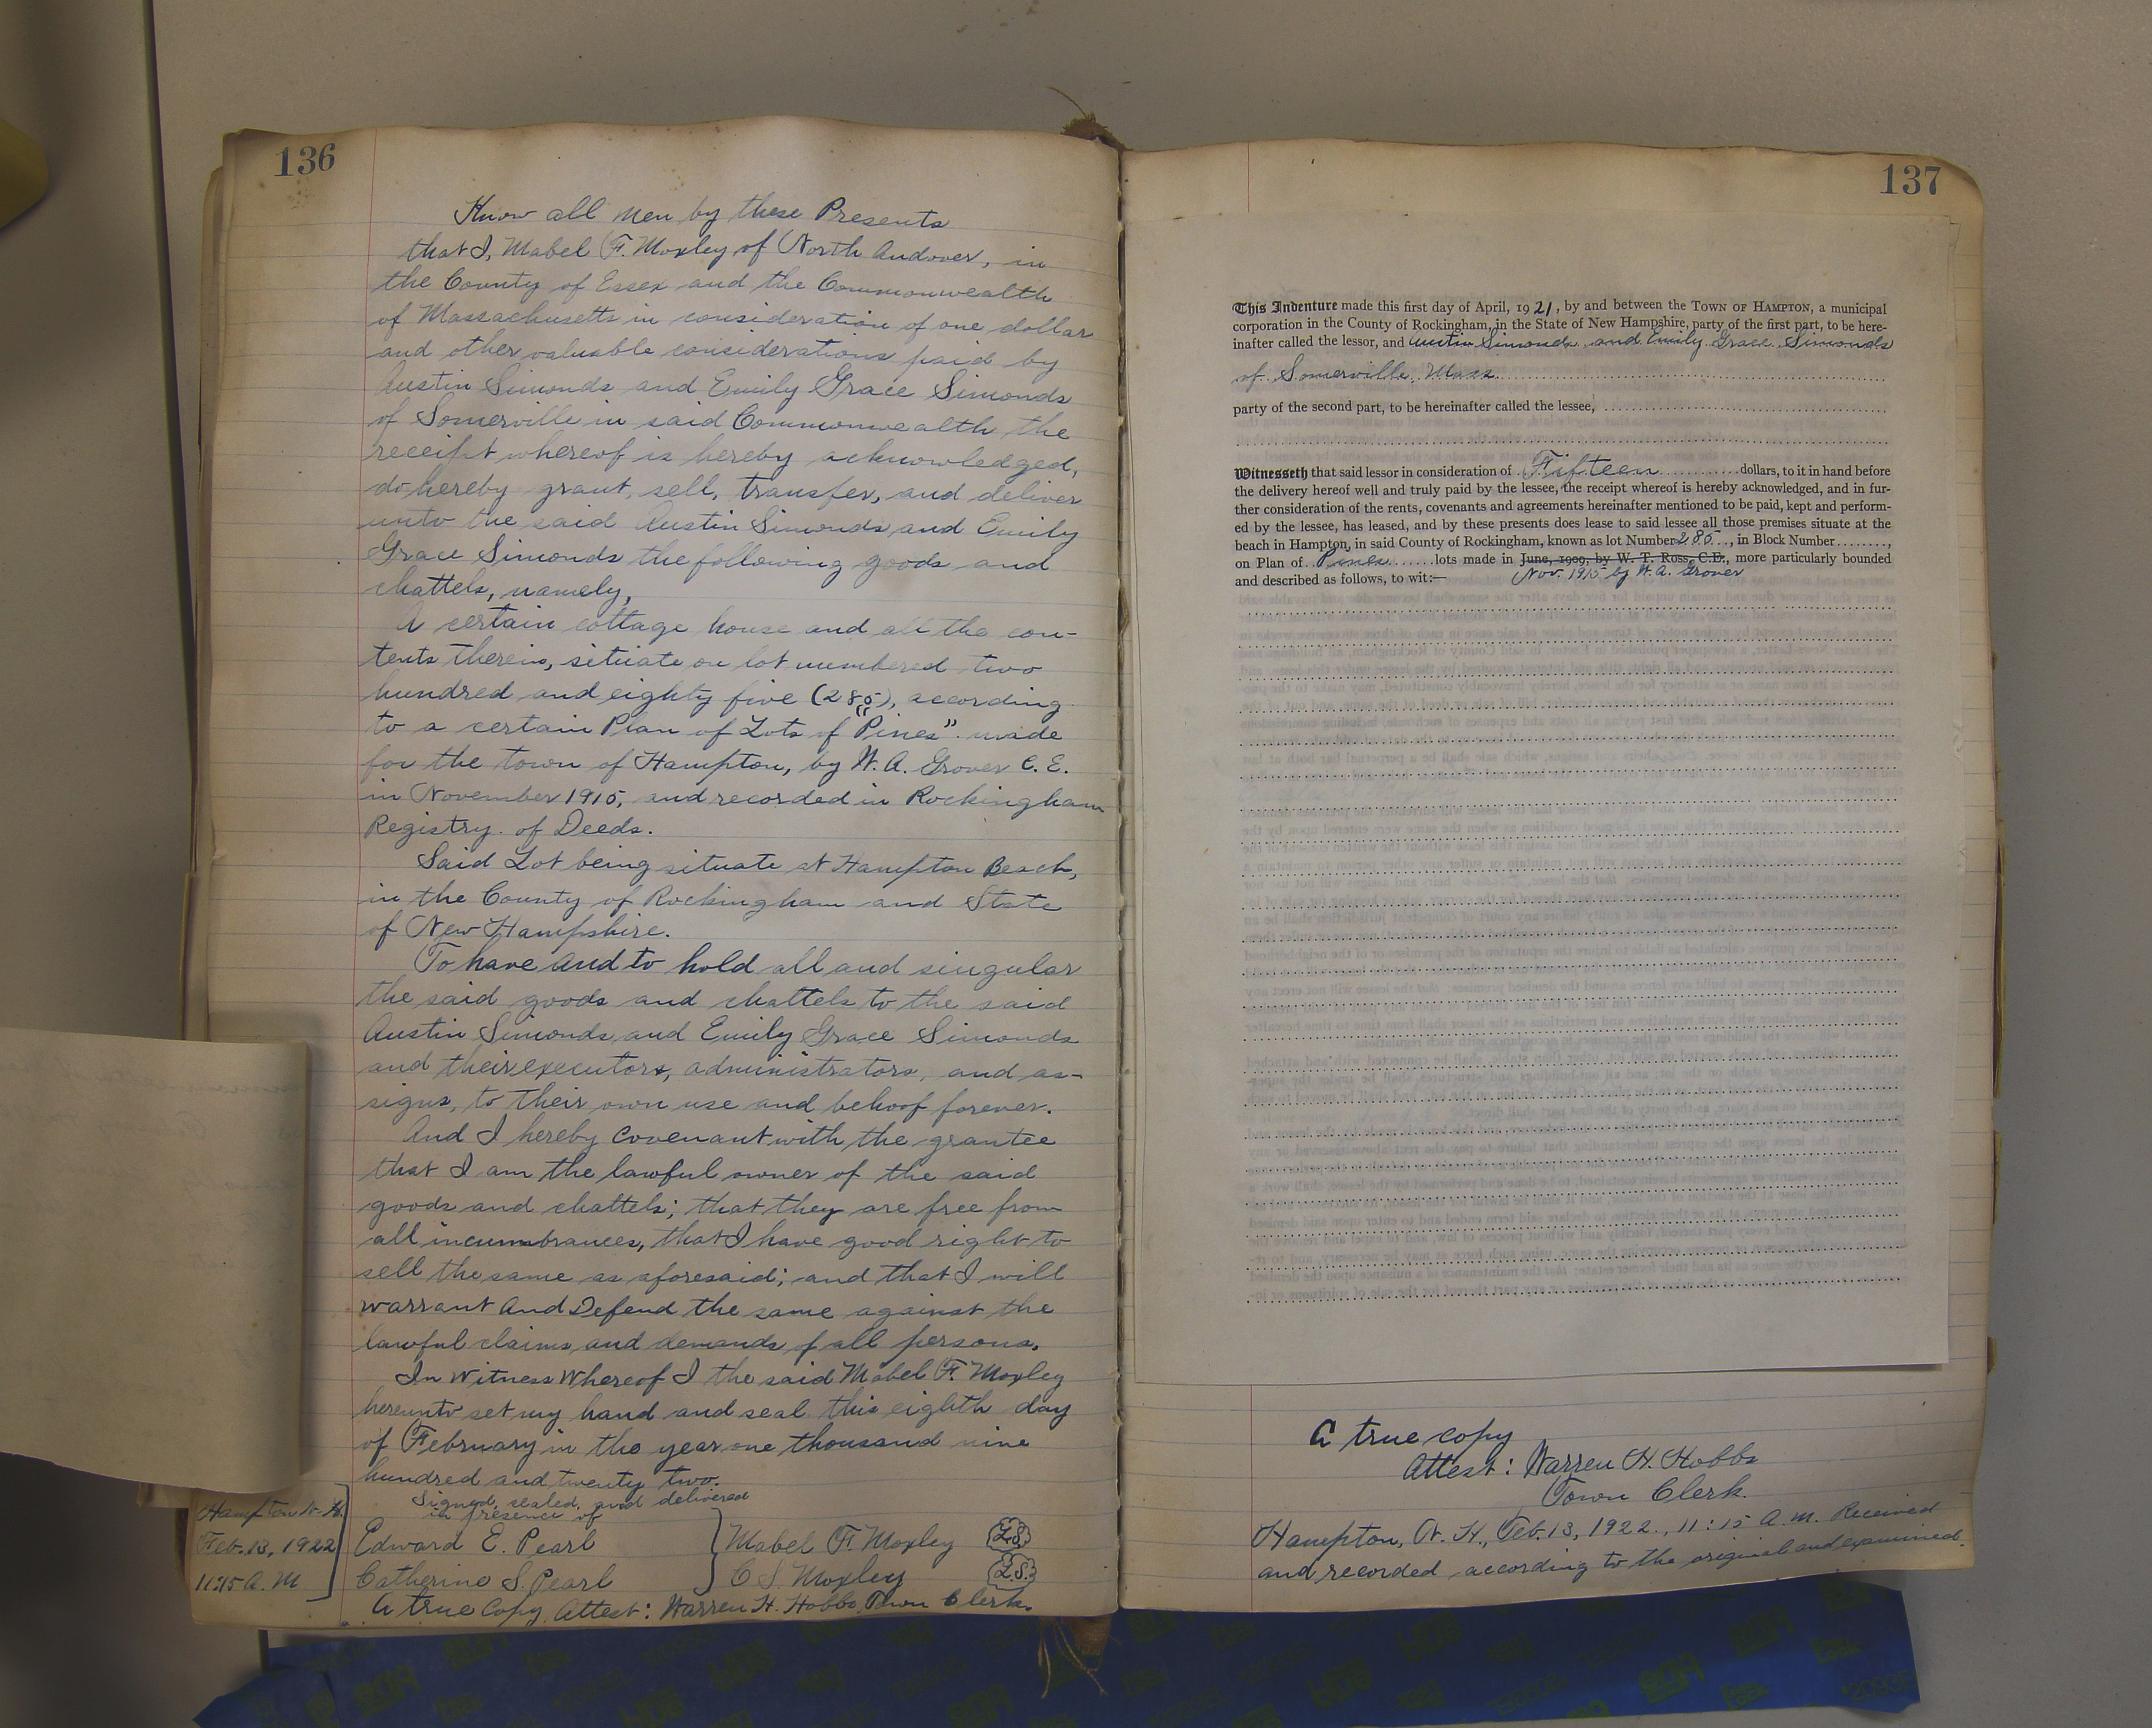 136
Know all men by these Presents
that I, Mabel F. Moxley of North Andover, in
the County of Essex and the Commonwealth
of Massachusetts in consideration of one dollar
and other valuable considerations paid by
Austin Simonds and Emily Grace Simonds
of Somerville in said Commonwealth the
receipt whereof is hereby acknowledged,
do hereby grant, sell, transfer, and deliver
unto the said Austin Simonds and Emily
Grace Simonds the following goods and
chattels, namely,
A certain cottage house and all the con-
tents therein, situate on lot numbered two
hundred and eighty five (285), according
to a certain Plan of Lots of "Pines" made
for the town of Hampton, by W. A. Grover C. E.
in November 1915, and recorded in Rockingham
Registry of Deeds.
Said Lot being situate at Hampton Beach,
in the County of Rockingham and State
of New Hampshire.
To have and to hold all and singular
the said goods and chattels to the said
Austin Simonds and Emily Grace Simonds
and their executors, administrators, and as-
signs, to their own use and behoof forever.
And I hereby covenant with the grantee
that I am the lawful owner of the said
goods and chattels; that they are free from
all incumbrances, that I have good right to
sell the same as aforesaid; and that I will
warrant and Defend the same against the
lawful claims and demands of all persons.
In witness Whereof I the said Mabel F. Moxley
hereunto set my hand and seal this eighth day
of February in the year one thousand nine
hundred and twenty two.
Signed, sealed, and delivered
in presence of
Hampton N. H.
Feb. 13, 1922
11:15 A. M
Edward E. Pearl
Catherine S. Pearl
Mabel F. Moxley L.S.
C S. Moxley L.S.
A true Copy, Attest: Warren H. Hobbs, Town Clerk.
137
This Indenture made this first day of April, 1921, by and between the TOWN OF HAMPTON, a municipal
corporation in the County of Rockingham, in the State of New Hampshire, party of the first part, to be here-
inafter called the lessor, and Austin Simonds and Emily Grace Simonds
of Somerville, Mass.
party of the second part, to be hereinafter called the lessee,
Witnesseth that said lessor in consideration of Fifteen dollars, to it in hand before
the delivery hereof well and truly paid by the lessee, the receipt whereof is hereby acknowledged, and in fur-
ther consideration of the rents, covenants and agreements hereinafter mentioned to be paid, kept and perform-
ed by the lessee, has leased, and by these presents does lease to said lessee all those premises situate at the
beach in Hampton, in said County of Rockingham, known as lot Number 285, in Block Number ........,
on Plan of Pines lots made in June, 1909, by W. T. Ross, C.E., more particularly bounded
and described as follows, to wit:— Nov. 1915 by W. A. Grover
A true copy
Attest: Warren H. Hobbs
Town Clerk.
Hampton, N. H., Feb. 13, 1922, 11:15 A. M. Received
and recorded according to the original and examined.